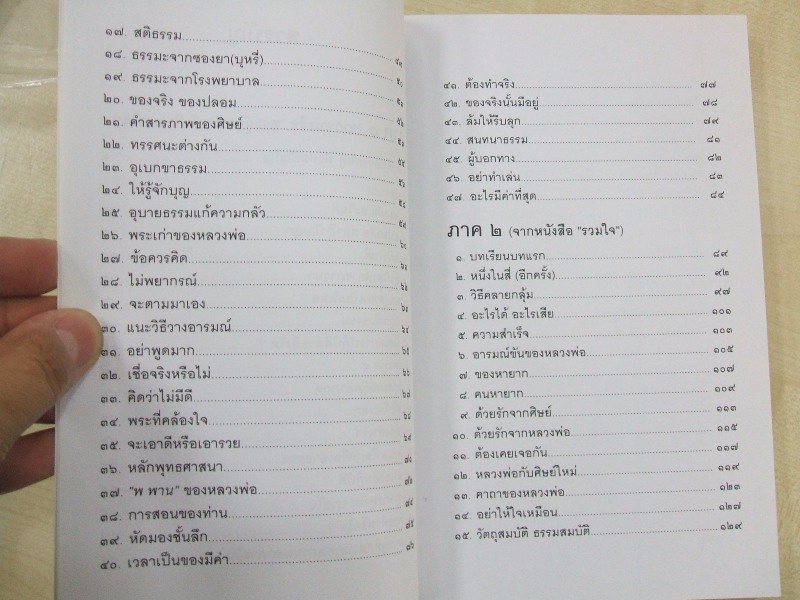 ๑๗. สติธรรม
๑๘. ธรรมะจากซองยา(บุหรี่) ๔๙
๑๙. ธรรมะจากโรงพยาบาล ๕๐
๒๐. ของจริง ของปลอม
๒๑. คำสารภาพของศิษย์
๒๒. ทรรศนะต่างกัน
๒๓. อุเบกขาธรรม
๒๔. ให้รู้จักบุญ
๒๕. อุบายธรรมแก้ความกลัว
๒๖. พระเก่าของหลวงพ่อ ๖๐
๒๗. ข้อควรคิด
๒๘. ไม่พยากรณ์
๒๙. จะตามมาเอง
๓๐. แนะวิธีวางอารมณ์ ๖๔
๓๑. อย่าพูดมาก ๖๕
๓๒. เชื่อจริงหรือไม่ ๖๖
๓๓. คิดว่าไม่มีดี ๖๗
๓๔. พระที่คล้องใจ ๖๘
๓๕. จะเอาดีหรือเอารวย ๖๙
๓๖. หลักพุทธศาสนา
๓๗. "พ พาน" ของหลวงพ่อ
๓๘. การสอนของท่าน ๗๔
๓๙. หัดมองชั้นลึก ๗๕
๔๐. เวลาเป็นของมีค่า ๗๖
๔๑. ต้องทำจริง ๗๗
๔๒. ของจริงนั้นมีอยู่ ๗๘
๔๓. ล้มให้รีบลุก ๗๙
๔๔. สนทนาธรรม ๘๑
๔๕. ผู้บอกทาง ๘๒
๔๖. อย่าทำเล่น ๘๓
๔๗. อะไรมีค่าที่สุด ๘๔
ภาค ๒ (จากหนังสือ "รวมใจ")
๑. บทเรียนบทแรก ๘๙
๒. หนึ่งในสี่ (อีกครั้ง) ๙๒
๓. วิธีคลายกลุ้ม ๙๗
๔. อะไรได้ อะไรเสีย ๑๐๑
๕. ความสำเร็จ ๑๐๓
๖. อารมณ์ขันของหลวงพ่อ ๑๐๕
๗. ของหายาก ๑๐๗
๘. คนหายาก ๑๐๙
๙. ด้วยรักจากศิษย์ ๑๑๓
๑๐. ด้วยรักจากหลวงพ่อ ๑๑๕
๑๑. ต้องเคยเจอกัน ๑๑๗
๑๒. หลวงพ่อกับศิษย์ใหม่ ๑๑๙
๑๓. คาถาของหลวงพ่อ ๑๒๓
๑๔. อย่าให้ใจเหมือน ๑๒๗
๑๕. วัตถุสมบัติ ธรรมสมบัติ ๑๒๙